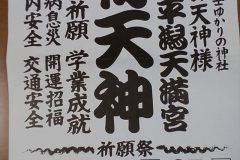 士ゆかりの神社
天神様
平潟天満宮
天神
祈願 学業成就
病息災 開運招福
内安全 交通安全
祈願祭